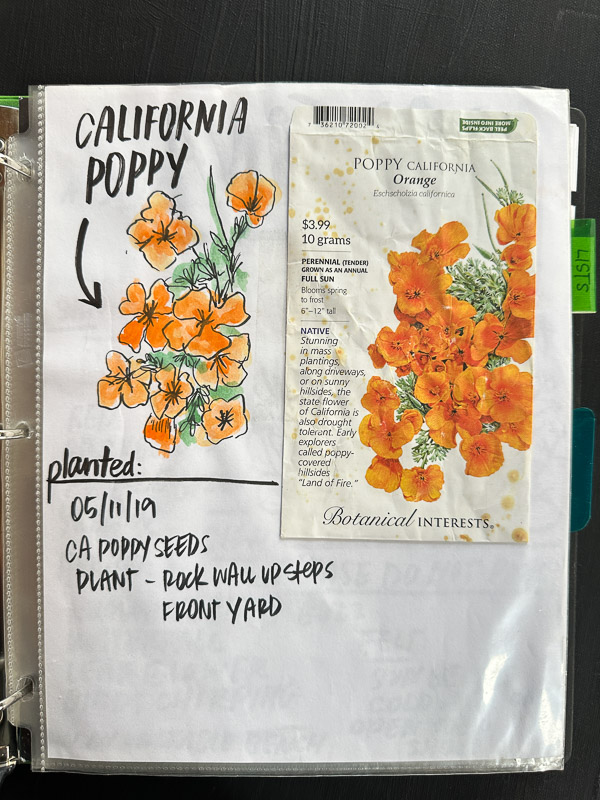 CALIFORNIA
POPPY
planted:
05/11/19
CA POPPY SEEDS
PLANT - ROCK WALL UP STEPS
FRONT YARD
7 36210 72002 4
PEEL BACK FLAPS
MORE INFO INSIDE
POPPY CALIFORNIA
Orange
Eschscholzia californica
$3.99
10 grams
PERENNIAL (TENDER)
GROWN AS AN ANNUAL
FULL SUN
Blooms spring
to frost
6"–12" tall
NATIVE
Stunning
in mass
plantings,
along driveways,
or on sunny
hillsides, the
state flower
of California is
also drought
tolerant. Early
explorers
called poppy-
covered
hillsides
"Land of Fire."
Botanical INTERESTS®
LISTS